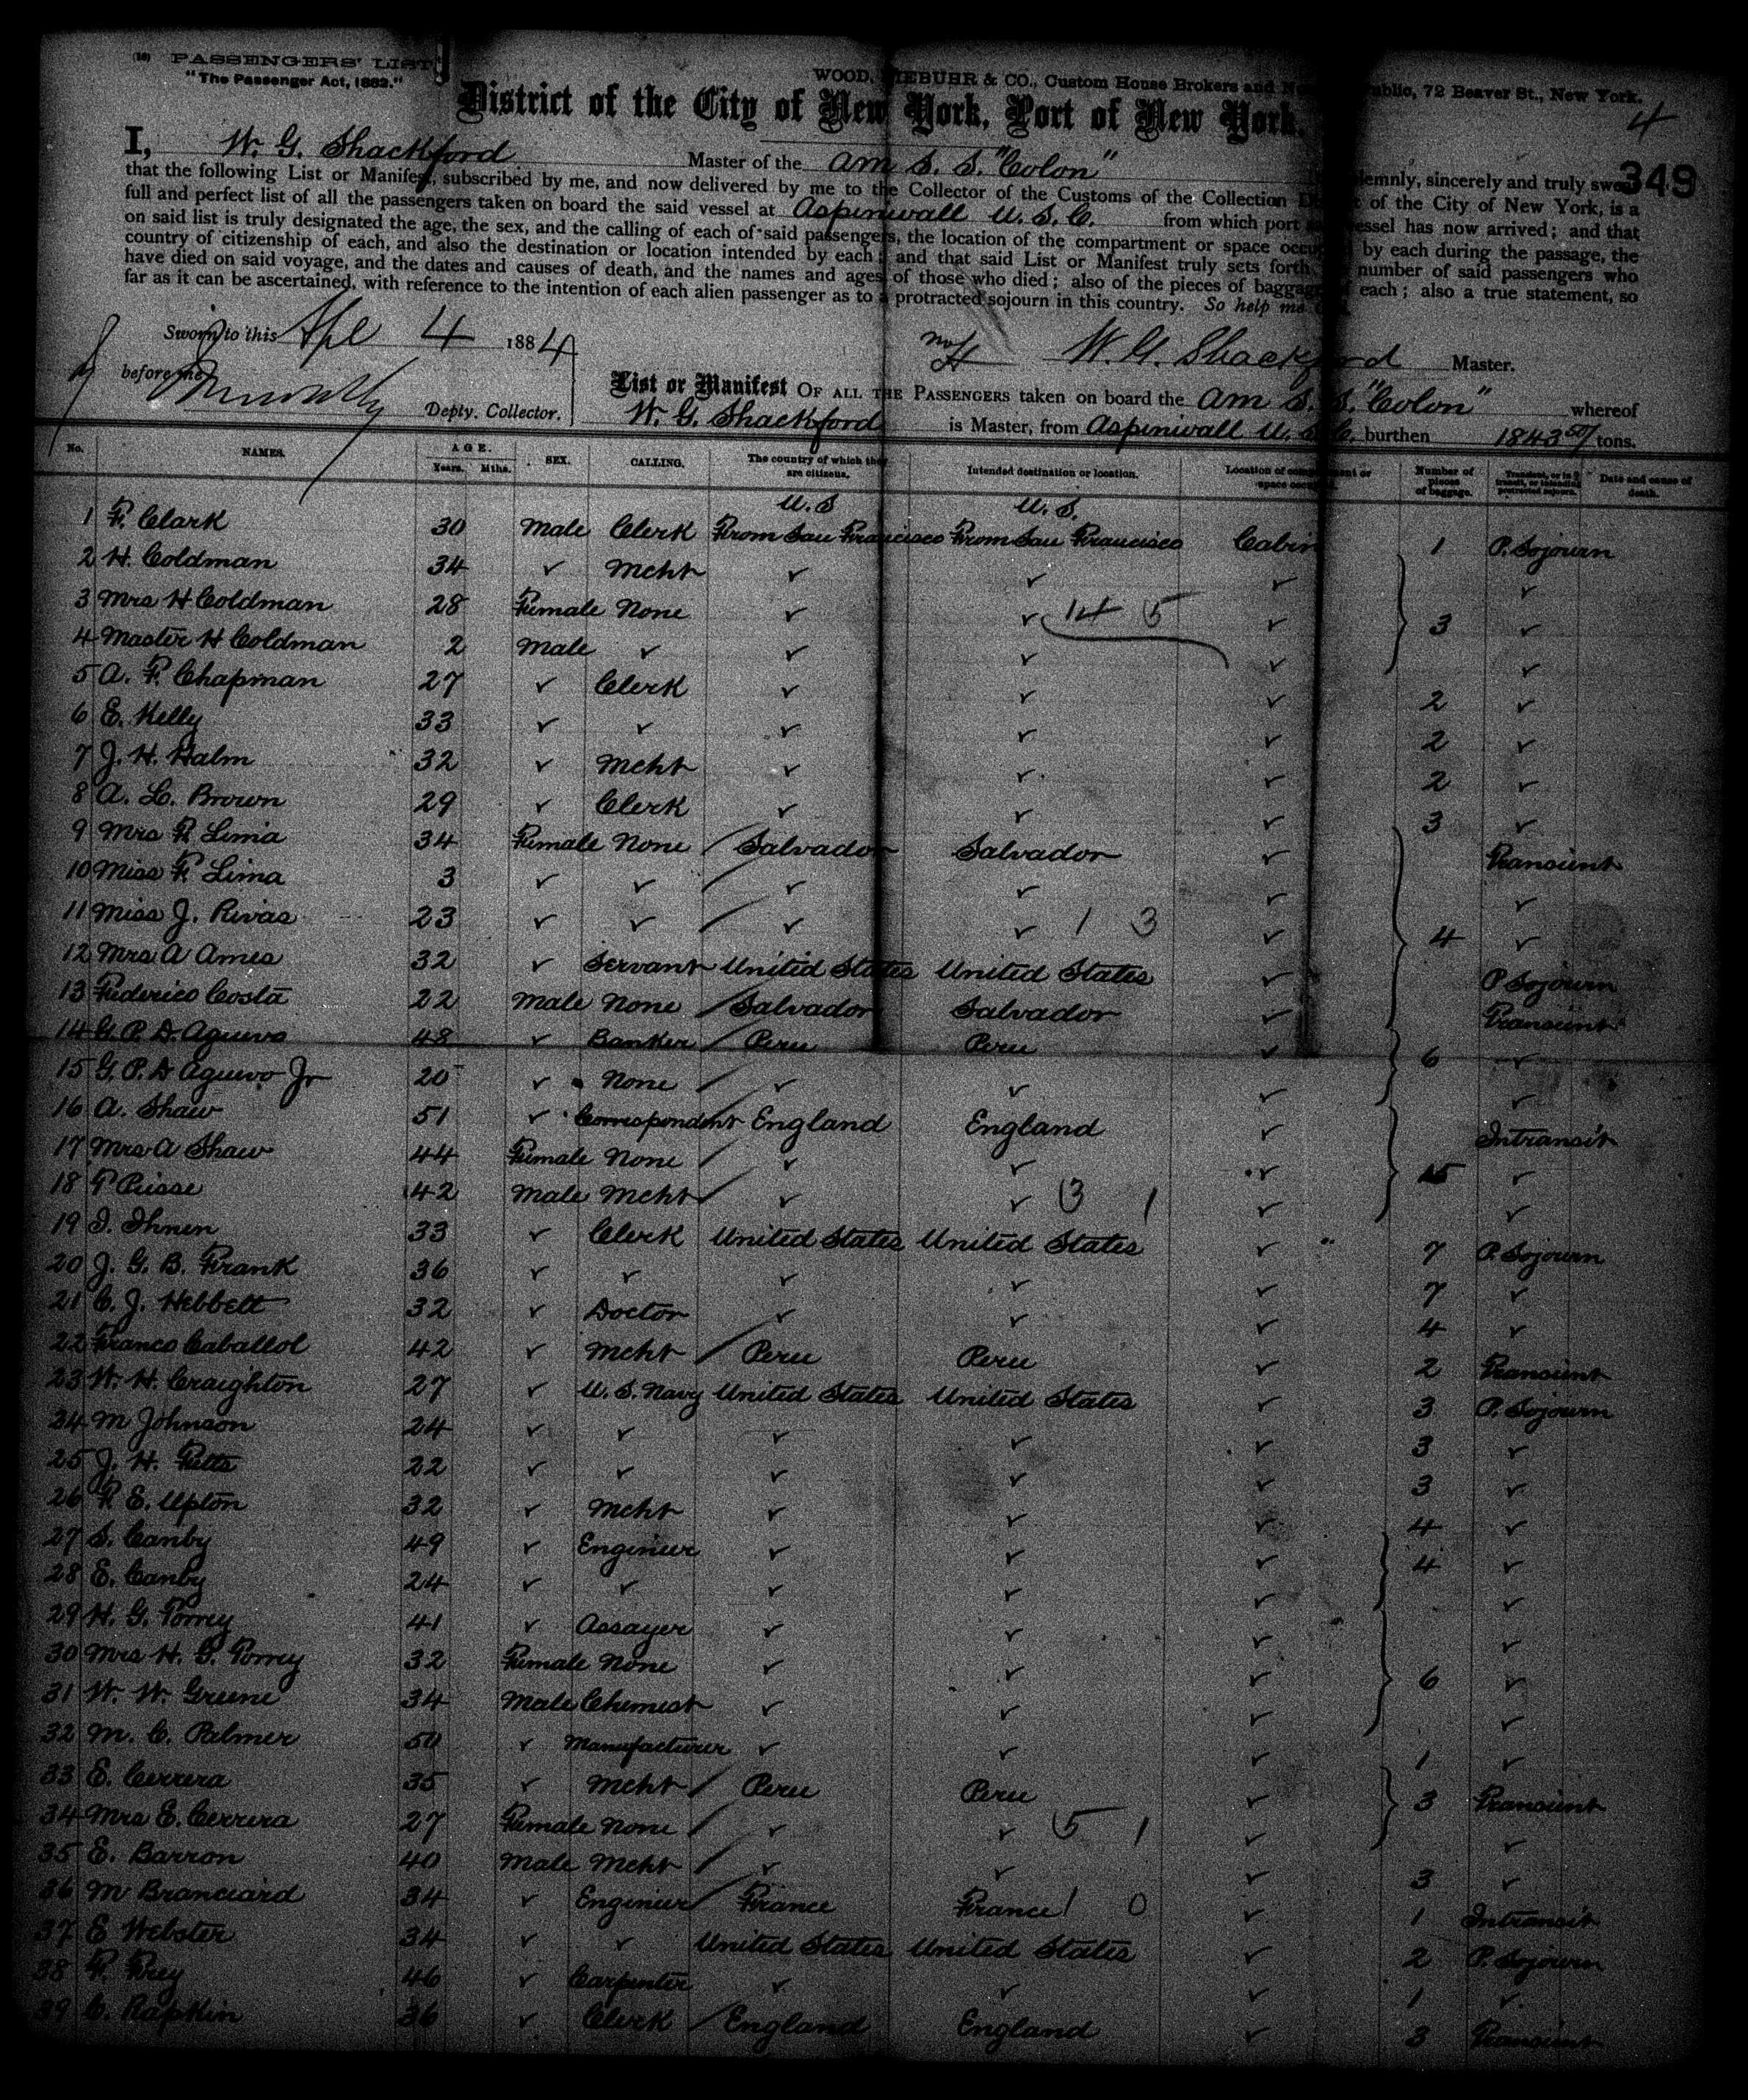 (16) PASSENGERS' LIST.
"The Passenger Act, 1882."
WOOD, NIEBUHR & CO., Custom House Brokers and Public, 72 Beaver St., New York.
4
District of the City of New York, Port of New York.
I, W. G. Shackford Master of the Am S. S. "Colon"
349
that the following List or Manifest, subscribed by me, and now delivered by me to the Collector of the Customs of the Collection of the City of New York, is a
full and perfect list of all the passengers taken on board the said vessel at Aspinwall U. S. C. from which port vessel has now arrived; and that
on said list is truly designated the age, the sex, and the calling of each of said passengers, the location of the compartment or space occupied by each during the passage, the
country of citizenship of each, and also the destination or location intended by each; and that said List or Manifest truly sets forth number of said passengers who
have died on said voyage, and the dates and causes of death, and the names and ages of those who died; also of the pieces of baggage of each; also a true statement, so
far as it can be ascertained, with reference to the intention of each alien passenger as to a protracted sojourn in this country. So help me
Sworn to this Apl 4 1884
W. G. Shackford Master.
before me
Depty. Collector.
List or Manifest OF ALL THE PASSENGERS taken on board the Am S. S. "Colon" whereof
W. G. Shackford is Master, from Aspinwall U. S. C. burthen 1843 50/ tons.
No. NAMES. AGE. Years. Mths. SEX. CALLING. The country of which they are citizens. Intended destination or location. Location of compartment or space occupied. Number of pieces of baggage. Transient, or in transit, or intending protracted sojourn. Date and cause of death.
U. S U. S.
1 F. Clark 30 Male Clerk From San Francisco From San Francisco Cabin 1 P. Sojourn
2 H. Coldman 34 ✓ Mcht ✓ ✓ ✓ ✓
3 Mrs H Coldman 28 Female None ✓ ✓ 14 5 ✓ 3 ✓
4 Master H Coldman 2 Male ✓ ✓ ✓ ✓ ✓
5 A. F. Chapman 27 ✓ Clerk ✓ ✓ ✓ 2 ✓
6 E. Kelly 33 ✓ ✓ ✓ ✓ ✓ 2 ✓
7 J. H. Halm 32 ✓ Mcht ✓ ✓ ✓ 2 ✓
8 A. L. Brown 29 ✓ Clerk ✓ ✓ ✓ 3 ✓
9 Mrs F. Lima 34 Female None Salvador Salvador ✓ Transient
10 Miss F. Lima 3 ✓ ✓ ✓ ✓ ✓ ✓
11 Miss J. Rivas 23 ✓ ✓ ✓ ✓ 1 3 ✓ 4 ✓
12 Mrs A Ames 32 ✓ Servant United States United States ✓ P Sojourn
13 Federico Costa 22 Male None Salvador Salvador ✓ Transient
14 G. P. D. Aguero 48 ✓ Banker Peru Peru ✓ 6 ✓
15 G. P. D Aguero Jr 20 ✓ None ✓ ✓ ✓ ✓
16 A. Shaw 51 ✓ Correspondent England England ✓ Intransit
17 Mrs A Shaw 44 Female None ✓ ✓ ✓ 15 ✓
18 42 Male Mcht ✓ ✓ 3 1 ✓ ✓
19 I. Ihnen 33 ✓ Clerk United States United States ✓ 7 P. Sojourn
20 J. G. B. Frank 36 ✓ ✓ ✓ ✓ ✓ 7 ✓
21 C. J. Hebbett 32 ✓ Doctor ✓ ✓ ✓ 4 ✓
22 Franco Caballol 42 ✓ Mcht Peru Peru ✓ 2 Transient
23 W. H. Craighton 27 ✓ U. S. Navy United States United States ✓ 3 P. Sojourn
24 M Johnson 24 ✓ ✓ ✓ ✓ ✓ 3 ✓
25 J. H. Fetts 22 ✓ ✓ ✓ ✓ ✓ 3 ✓
26 F. E. Upton 32 ✓ Mcht ✓ ✓ ✓ 4 ✓
27 S. Canby 49 ✓ Engineer ✓ ✓ ✓ 4 ✓
28 E. Canby 24 ✓ ✓ ✓ ✓ ✓ ✓
29 H. G. Torrey 41 ✓ Assayer ✓ ✓ ✓ ✓
30 Mrs H. G. Torrey 32 Female None ✓ ✓ ✓ 6 ✓
31 W. W. Greene 34 Male Chemist ✓ ✓ ✓ ✓
32 M. C. Palmer 50 ✓ Manufacturer ✓ ✓ ✓ 1 ✓
33 E. Cerrera 35 ✓ Mcht Peru Peru ✓ 3 Transient
34 Mrs E. Cerrera 27 Female None ✓ ✓ 5 1 ✓ ✓
35 E. Barron 40 Male Mcht ✓ ✓ ✓ 3 ✓
36 M Branciard 34 ✓ Engineer France France 1 0 ✓ 1 Intransit
37 E Webster 34 ✓ ✓ United States United States ✓ 2 P. Sojourn
38 F. Frey 46 ✓ Carpenter ✓ ✓ ✓ 1 ✓
39 C. Rapkin 36 ✓ Clerk England England ✓ 3 Transient